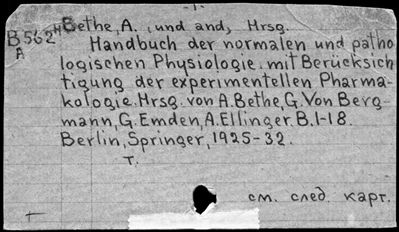 -1-
Bethe, A., und and, Hrsg.
B562
A
Handbuch der normalen und patho
logischen Physiologie mit Berücksich
tigung der experimentellen Pharma-
kologie. Hrsg. von A. Bethe, G. Von Berg-
mann, G. Emden, A. Ellinger. B. 1-18.
Berlin, Springer, 1925-32.
т.
см. след. карт.